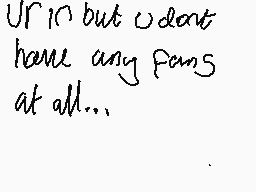 Ur in but u dont
have any fans
at all...